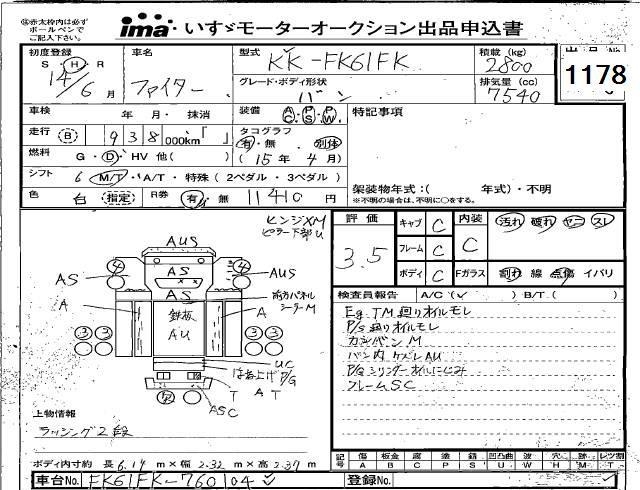 ※赤太枠内は必ずボールペンでご記入下さい。
ima® いすゞモーターオークション出品申込書
初度登録 S・H・R 14/6月
車名 ファイター
型式 KK-FK61FK
積載(kg) 2800
1178
グレード・ボディ形状 バン
排気量(cc) 7540
車検 年 月・抹消
装備 AC PS PW
特記事項
走行 B 938 000km「 」
タコグラフ 有・無 別体
燃料 G・D・HV 他( )
(15年4月)
シフト 6 M/T・A/T・特殊(2ペダル・3ペダル)
色 台 指定
R券 有・無 11410円
架装物年式:( 年式)・不明
※不明の場合は、不明に○をする。
ヒンジXM
ピラー下部U
評価 3.5
キャブ C
内装 C
汚れ 破れ ヤニ スレ
フレーム C
ボディ C
Fガラス 割れ 線 点傷 イバリ
AUS
④ ④
AS AS AUS
AS
A A
前方パネル
シーラーM
鉄板
AU
③③ ③③
UC
はね上げP/G
T A T
ASC
検査員報告 A/C(✓) B/T( )
Eg.TM廻りオイルモレ
P/S廻りオイルモレ
カンバンM
バン内ケズレAU
P/Gシリンダーオイルにじみ
フレームSC
上物情報
ラッシング2段
ボディ内寸約 長6.19m×幅2.32m×高2.37m
記号 傷A 板金B 腐C 塗P 錆S 凹凸曲U 波W 穴H 跡M レツ割T
車台No. FK61FK-760104
登録No.